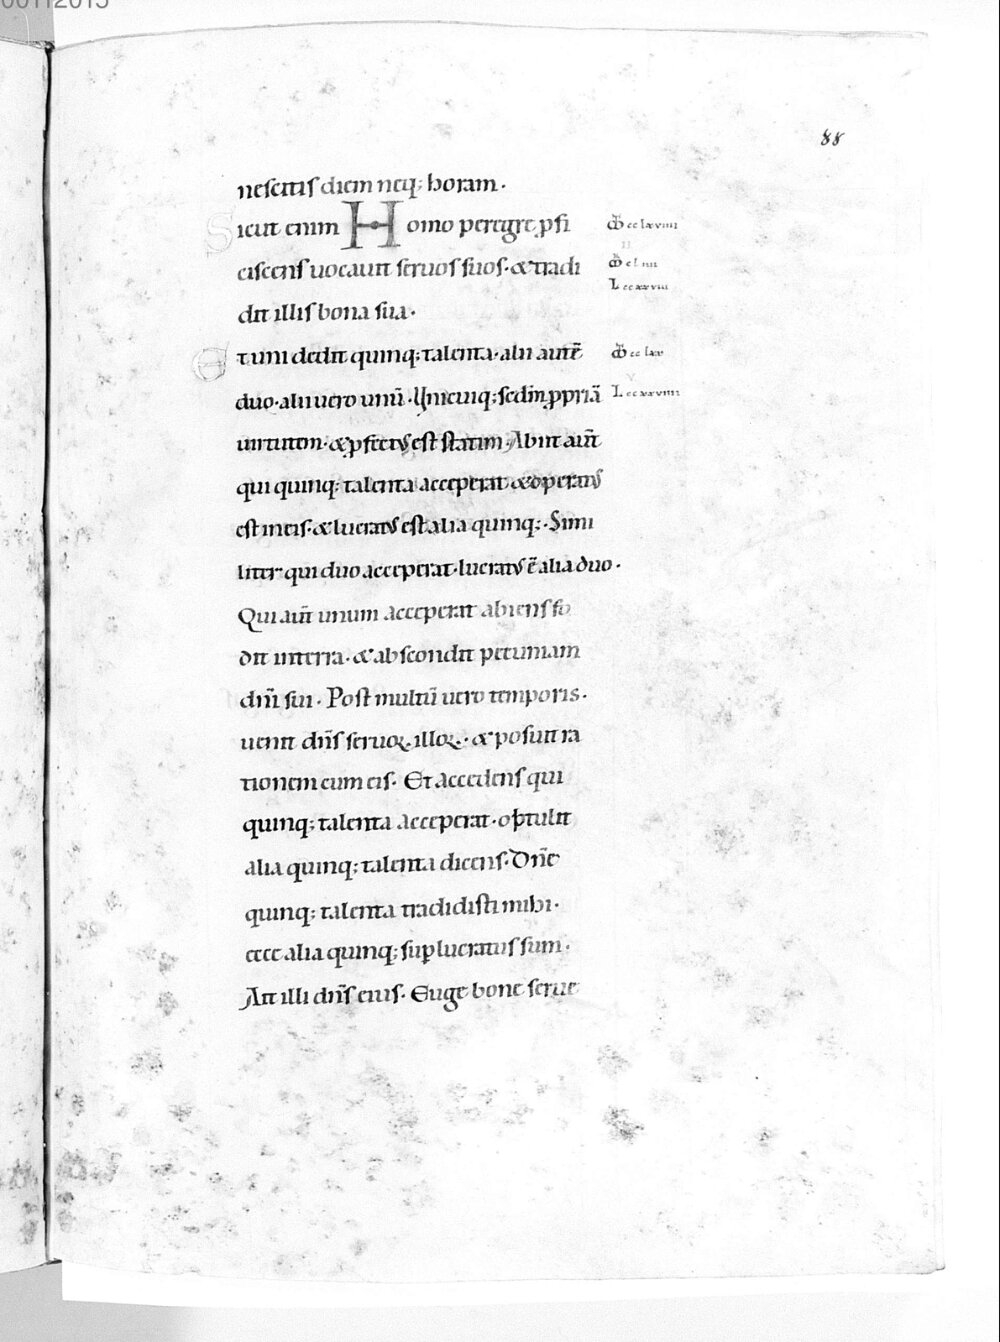 00112015
88
nescitis diem neq; horam.
Sicut enim Homo peregre ꝓfi
ciscens uocauit seruos suos. & tradi
dit illis bona sua.
Et uni dedit quinq; talenta. alii autē
duo. alii uero unū. Unicuiq; scdm ꝓpriā
uirtutem. & ꝓfectus est statim. Abiit aut̄
qui quinq; talenta acceperat. & operatus
est in eis. & lucratus est alia quinq;. Simi
liter qui duo acceperat. lucratus ē alia duo.
Qui aut̄ unum acceperat abiens fo
dit in terra. & abscondit pecuniam
dn̄i sui. Post multū uero temporis.
uenit dn̄s seruoꝝ illoꝝ. & posuit ra
tionem cum eis. Et accedens qui
quinq; talenta acceperat. optulit
alia quinq; talenta dicens. Dn̄e
quinq; talenta tradidisti mihi.
ecce alia quinq; suꝑlucratus sum.
Ait illi dn̄s eius. Euge bone serue